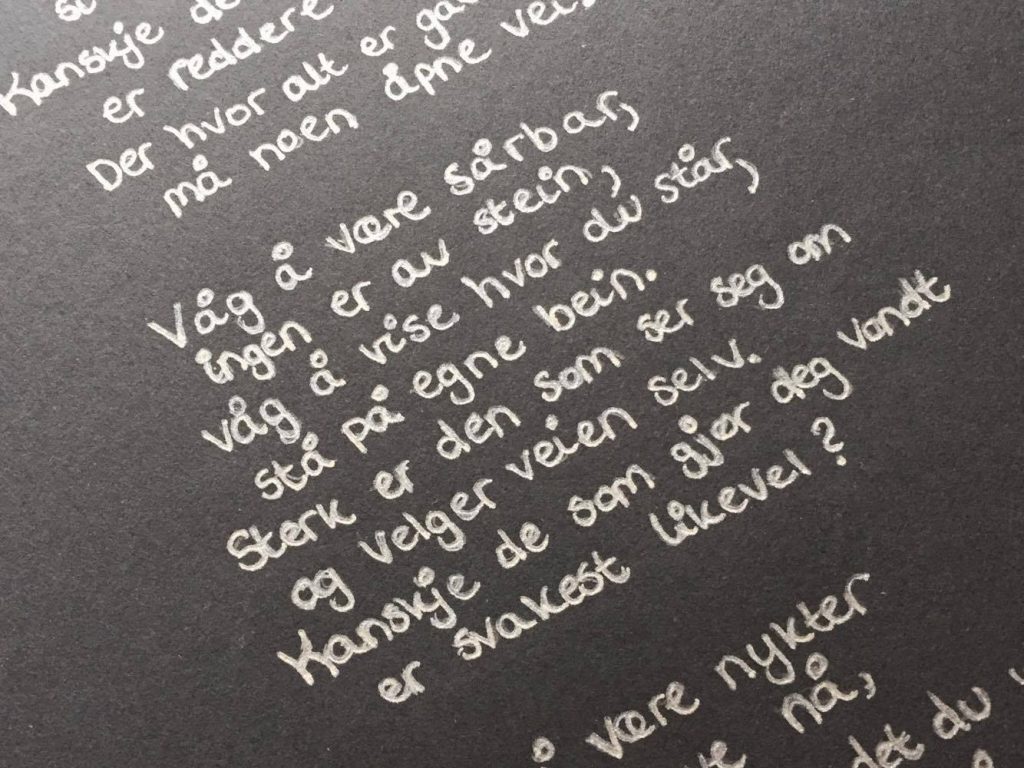 Kanskje de
er reddere
Der hvor alt er
må noen åpne
Våg å være sårbar,
ingen er av stein,
våg å vise hvor du står,
stå på egne bein.
Sterk er den som ser seg om
og velger veien selv.
Kanskje de som gjør deg vondt
er svakest likevel?
å være nykter
nå,
det du